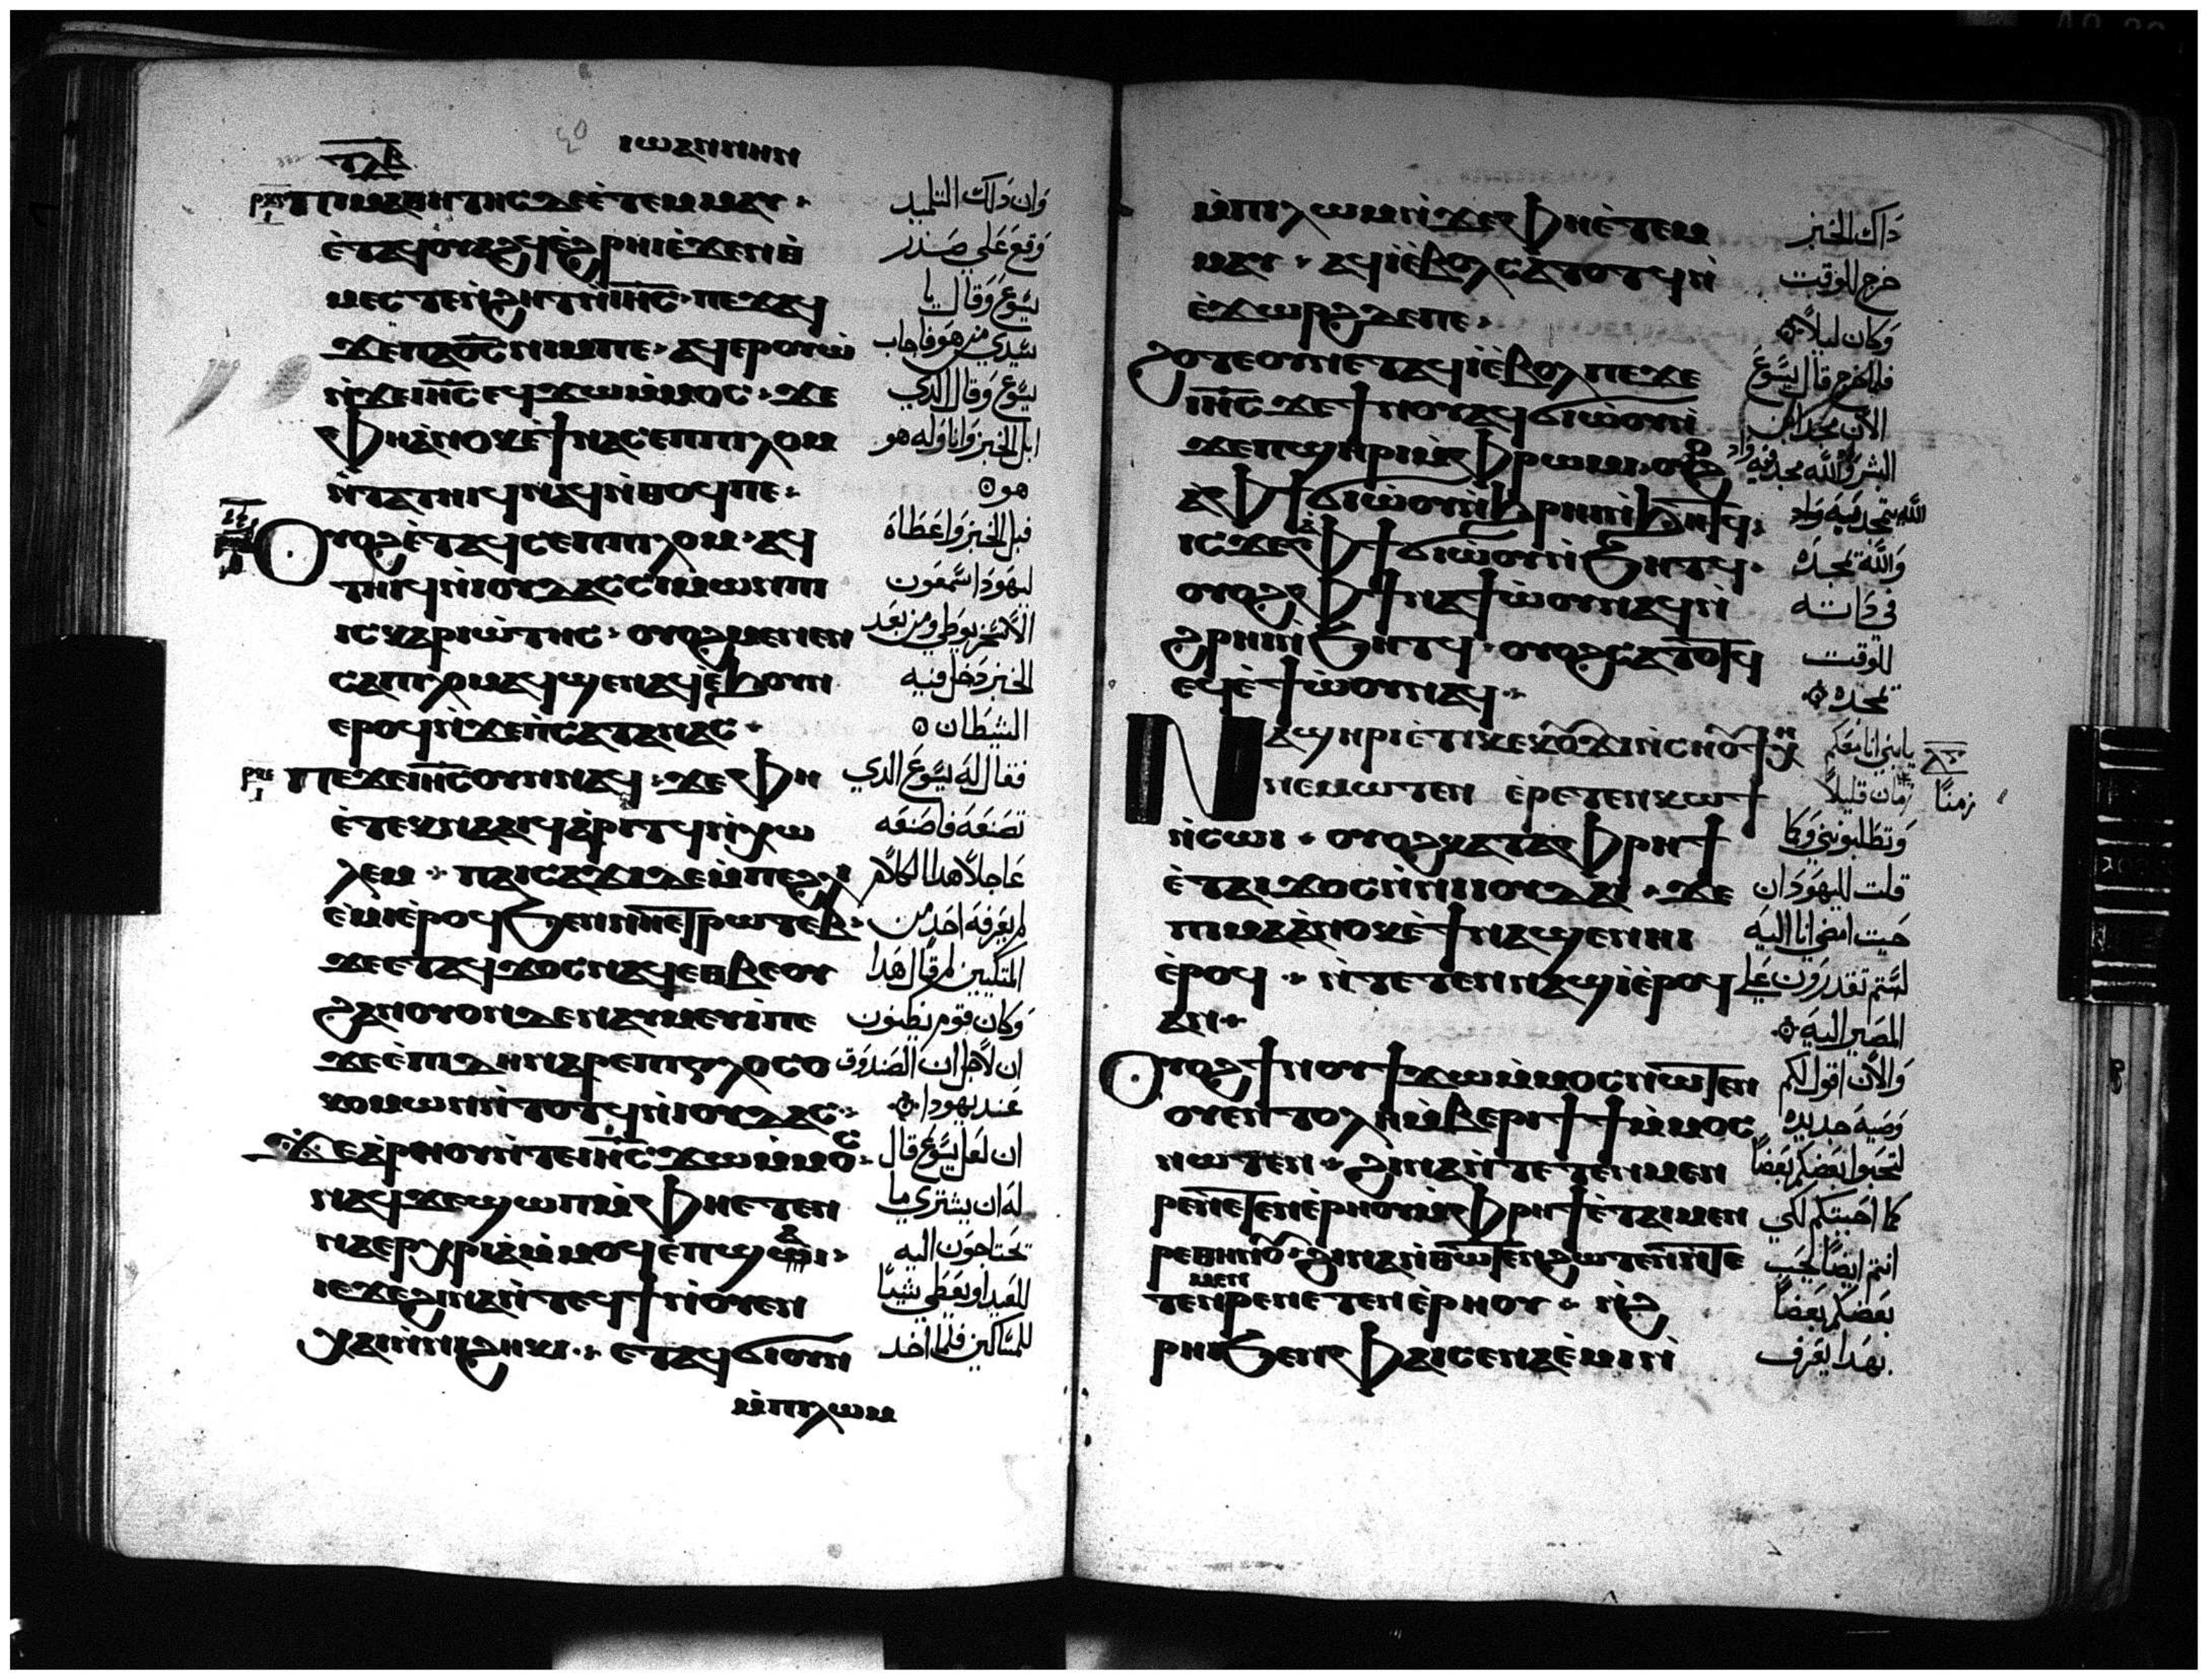 ⲓⲱⲁⲛⲛⲏⲛ
ⲧⲗⲃ
ⲡⲓⲙⲁⲑⲏⲧⲏⲥ ⲇⲉ ⲉ̀ⲧⲉⲙⲙⲁⲩ وان دلك التلميد
ⲉ̀ⲧⲁϥⲟⲩⲁϩϥ ⲉ̀ϩⲣⲏⲓ ⲉ̀ϫⲉⲛ ⲑ̀ وقع على صدر
ⲙⲉⲥⲧⲉⲛϩⲏⲧ ⲛ̀ⲓⲏ̅ⲥ̅ ⲡⲉϫⲁϥ يسوع وقال يا
ϫⲉ ⲡϭⲟⲓⲥ ⲛⲓⲙ ⲡⲉ ⲁϥⲉⲣⲟⲩⲱ̀ سيدي من هو فاجاب
ⲛ̀ϫⲉ ⲓⲏ̅ⲥ̅ ⲉϥϫⲱ ⲙ̀ⲙⲟⲥ ϫⲉ يسوع وقال الدي
ⲫⲏ ⲁ̀ⲛⲟⲕ ⲉ̀ϯⲛⲁⲥⲉⲡ ⲡⲓⲗⲟⲙ ابل الخبز واناوله هو
ⲛ̀ⲧⲁⲧⲏⲓϥ ⲛⲁϥ ⲛ̀ⲑⲟϥ ⲡⲉ هو
ⲟⲩⲟϩ ⲉ̀ⲧⲁϥⲥⲉⲡ ⲡⲓⲗⲟⲙ ⲁϥ فبل الخبز واعطاه
ⲧⲏⲓϥ ⲛ̀ⲓⲟⲩⲇⲁⲥ ⲥⲓⲙⲱⲛ ⲡⲓ ليهودا سمعون
ⲓⲥⲕⲁⲣⲓⲱ̀ⲧⲏⲥ ⲟⲩⲟϩ ⲙⲉⲛⲉⲛ الاسخريوطي ومن بعد
ⲥⲁ ⲡⲓⲗⲟⲙ ⲁϥϣⲉⲛⲁϥ ⲉ̀ϧⲟⲩⲛ الخبز دخل فيه
ⲉⲣⲟϥ ⲛ̀ϫⲉ ⲡ̀ⲥⲁⲧⲁⲛⲁⲥ الشيطان
ⲡⲉϫⲉ ⲓⲏ̅ⲥ̅ ⲟⲩⲛ ⲛⲁϥ ϫⲉ ⲫⲏ فقال له يسوع الدي
ⲉ̀ⲧⲉⲕⲛⲁⲁⲓϥ ⲁ̀ⲣⲓⲧϥ ⲛ̀ⲭⲱ تصنعه فاصنعه
ⲗⲉⲙ ⲡⲁⲓⲥⲁϫⲓ ⲇⲉ ⲙ̀ⲡⲉ ϩⲗⲓ عاجلا هدا الكلام
ⲉ̀ⲙⲓ ⲉ̀ⲣⲟϥ ϧⲉⲛ ⲛⲏⲉⲧⲣⲱⲧⲉⲃ لم يعرفه احد من
ϫⲉ ⲉⲧⲁϥϫⲟⲥ ⲛⲁϥ ⲉⲑⲃⲉ ⲟⲩ المتكيين لم قال هدا
ϩⲁⲛⲟⲩⲟⲛ ⲇⲉ ⲛⲁⲩⲙⲉⲩⲓ̀ ⲡⲉ وكان قوم يظنون
ϫⲉ ⲉ̀ⲡⲓⲇⲏ ⲛⲁⲣⲉ ⲡⲓⲅⲗⲟⲥⲟ ان لاجل ان الصندوق
ⲕⲟⲙⲱⲛ ⲛ̀ⲧⲟⲧϥ ⲛ̀ⲓⲟⲩⲇⲁⲥ عند يهودا
ϫⲉ ⲁⲣⲏⲟⲩ ⲛ̀ⲧⲉ ⲓⲏ̅ⲥ̅ ϫⲱ ⲙ̀ⲙⲟⲥ ان لعل يسوع قال
ⲛⲁϥ ϫⲉ ϣⲱⲡ ⲙ̀ⲫⲏⲉⲧⲉⲛ له ان يشتري ما
ⲛⲁⲉⲣⲭⲣⲓⲁ̀ ⲙ̀ⲙⲟϥ ⲉ̀ⲡϣⲁⲓ تحتاجون اليه
ⲓⲉ ϫⲉ ϩⲓⲛⲁ ⲛ̀ⲧⲉϥϯ ⲛ̀ⲟⲩⲉⲛ للعيد او يعطي شيئا
ⲭⲁⲓ ⲛ̀ⲛⲓϩⲏⲕⲓ ⲉⲧⲁϥϭⲓ ⲟⲩⲛ للمساكين فلما اخد
ⲙ̀ⲡⲓⲗⲱⲙ
ⲙ̀ⲡⲓⲗⲱⲙ ⲛ̀ϫⲉ ⲫⲏ ⲉ̀ⲧⲉⲙ داك الخبز
ⲙⲁⲩ ⲁϥⲓ̀ ⲉ̀ⲃⲟⲗ ⲥⲁⲧⲟⲧϥ ⲛ̀ خرج للوقت
ⲉ̀ϫⲱⲣϩ ⲇⲉ ⲡⲉ وكان ليلا
ϩⲟⲧⲉ ⲟⲩⲛ ⲉⲧⲁϥⲓ̀ ⲉ̀ⲃⲟⲗ ⲡⲉϫⲉ فلما خرج قال يسوع
ⲓⲏ̅ⲥ̅ ϫⲉ ϯⲛⲟⲩ ⲁϥϭⲓⲱ̀ⲟⲩ ⲛ̀ الان مجد ابن
ϫⲉ ⲡϣⲏⲣⲓ ⲙ̀ⲫⲣⲱⲙⲓ ⲟⲩⲟϩ البشر والله مجد فيه واد
ⲁ̀ ⲫϯ ϭⲓⲱ̀ⲟⲩ ⲛ̀ϧⲣⲏⲓ ⲛ̀ϧⲏⲧϥ الله يتمجد فيه واد
ⲓⲥϫⲉ ⲁ ⲫϯ ϭⲓⲱ̀ⲟⲩ ⲛ̀ϧⲏⲧϥ والله يمجده
ⲟⲩⲟϩ ⲫϯ ⲛⲁϯⲱ̀ⲟⲩ ⲛⲁϥ ⲛ̀ في داته
ϩⲣⲏⲓ ⲛ̀ϧⲏⲧϥ ⲟⲩⲟϩ ⲥⲁⲧⲟⲧϥ للوقت
ⲉϥⲉ̀ϯⲱ̀ⲟⲩ ⲛⲁϥ يمجده
ⲛⲁϣⲏⲣⲓ ⲉ̀ⲧⲓ ⲕⲉⲕⲟⲩϫⲓ ⲛ̀ⲥⲏⲟⲩ ϯⲭⲏ يا بني انا معكم
ⲛⲉⲙⲱⲧⲉⲛ ⲉ̀ⲣⲉⲧⲉⲛⲕⲱϯ زمان قليلا زمنا
ⲛ̀ⲥⲱⲓ ⲟⲩⲟϩ ⲕⲁⲧⲁ ⲫⲣⲏϯ وتطلبوني وكما
ⲉ̀ⲧⲁⲓϫⲟⲥ ⲛ̀ⲛⲓⲓⲟⲩⲇⲁⲓ ϫⲉ قلت لليهود ان
ⲡⲓⲙⲁ ⲁ̀ⲛⲟⲕ ⲉ̀ϯⲛⲁϣⲉⲛⲏⲓ حيت امضي انا اليه
ⲉ̀ⲣⲟϥ ⲛ̀ⲧⲉⲧⲉⲛⲛⲁϣⲓ̀ ⲉ̀ⲣⲟϥ لستم تقدرون على
ⲁⲛ المصير اليه
ⲟⲩⲟϩ ϯⲛⲟⲩ ϯϫⲱ ⲙ̀ⲙⲟⲥ ⲛⲱⲧⲉⲛ والان اقول لكم
ⲟⲩⲉⲛⲧⲟⲗⲏ ⲙ̀ⲃⲉⲣⲓ ϯϯ ⲙ̀ⲙⲟⲥ وصية جديده
ⲛⲱⲧⲉⲛ ϩⲓⲛⲁ ⲛ̀ⲧⲉⲧⲉⲛⲙⲉⲛ لتحبوا بعضكم بعضا
ⲣⲉ ⲛⲉⲧⲉⲛⲉ̀ⲣⲏⲟⲩ ⲙ̀ⲫⲣⲏϯ ⲉ̀ⲧⲁⲓⲙⲉⲛ كما احببتكم لكي
ⲣⲉ ⲑⲏⲛⲟⲩ ϩⲓⲛⲁ ⲛ̀ⲑⲱⲧⲉⲛ ϩⲱⲧⲉⲛ ⲛ̀ⲧⲉ انتم ايضا ليحب
ⲧⲉⲛⲙⲉⲛⲣⲉ ⲛⲉⲧⲉⲛⲉ̀ⲣⲏⲟⲩ ⲛ̀ϩ بعضكم بعضا
ⲣⲏⲓ ϧⲉⲛ ⲫⲁⲓ ⲥⲉⲛⲁⲉ̀ⲙⲓ ⲛ̀ بهدا يعرف